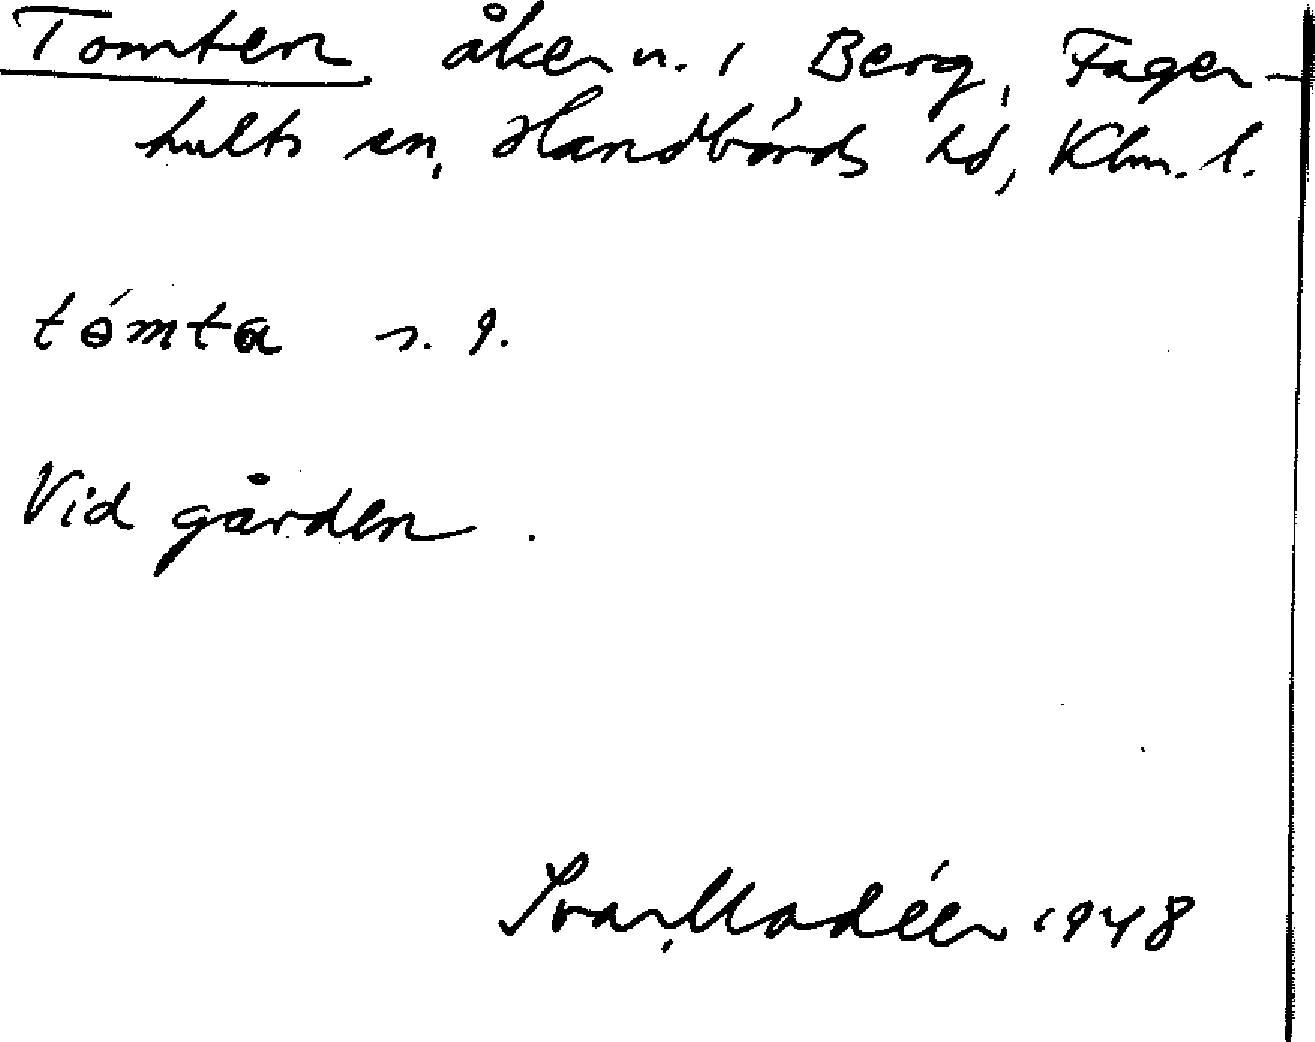 Tomten åkern. i Berg, Fager-
hults sn, Handbörds hd, Klm. l.
tómta s. g.
Vid gården.
Ivar Modéer 1948